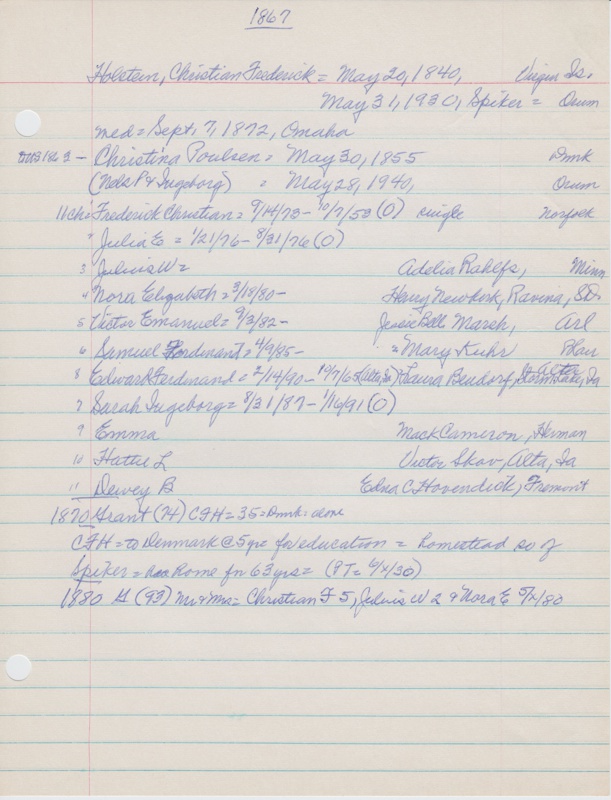 1867
Holstein, Christian Frederick = May 20, 1840, Virgin Is.
May 31, 1930, Spiker = Orum
med = Sept. 7, 1872, Omaha
Christina Poulsen = May 30, 1855 Dmk
(Nels P & Ingeborg) = May 28, 1940, Orum
11 ch: Frederick Christian = 9/14/73 - 10/7/53 (O) single Norfolk
" Julia E = 1/21/76 - 8/31/76 (O)
3 Julius W = Adelia Rahlfs, Minn
4 Nora Elizabeth = 3/18/80 - Henry Newkirk, Ravina, SD
5 Victor Emanuel = 9/3/82 - Jessie Bell Marsh, Arl
6 Samuel Ferdinant = 4/9/85 - " Mary Kuhr Blair
8 Edward Ferdinand = 2/14/90 - (Alta, Ia) Laura Bendorf, Alta Storm Lake, Ia
7 Sarah Ingeborg = 8/31/87 - 1/16/91 (O)
9 Emma Mack Cameron, Herman
10 Hattie L Victor Skov, Alta, Ia
11 Dewey B Edna C Hovendick, Fremont
1870 Grant (74) CFH = 35 = Dmk = alone
CFH = to Denmark @ 5 yrs for education = homestead so of
Spiker = has home fn 63 yrs = (PT = 6/x/30)
1880 G (93) Mr & Mrs = Christian F 5, Julius W 2 & Nora E 5/x/80